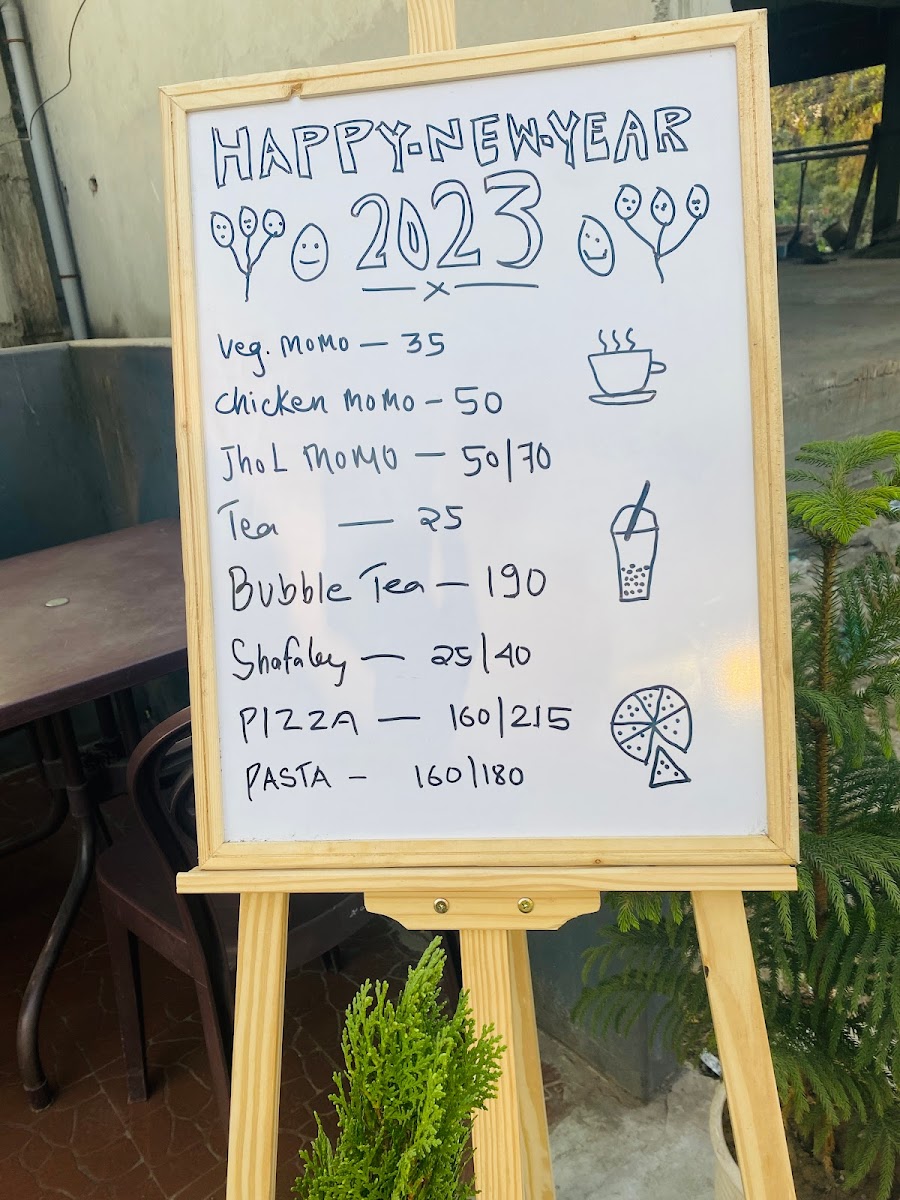 HAPPY-NEW-YEAR
2023
Veg. MOMO — 35
Chicken MOMO - 50
Jhol MOMO — 50/70
Tea — 25
Bubble Tea — 190
Shafaley — 25/40
PIZZA — 160/215
PASTA - 160/180